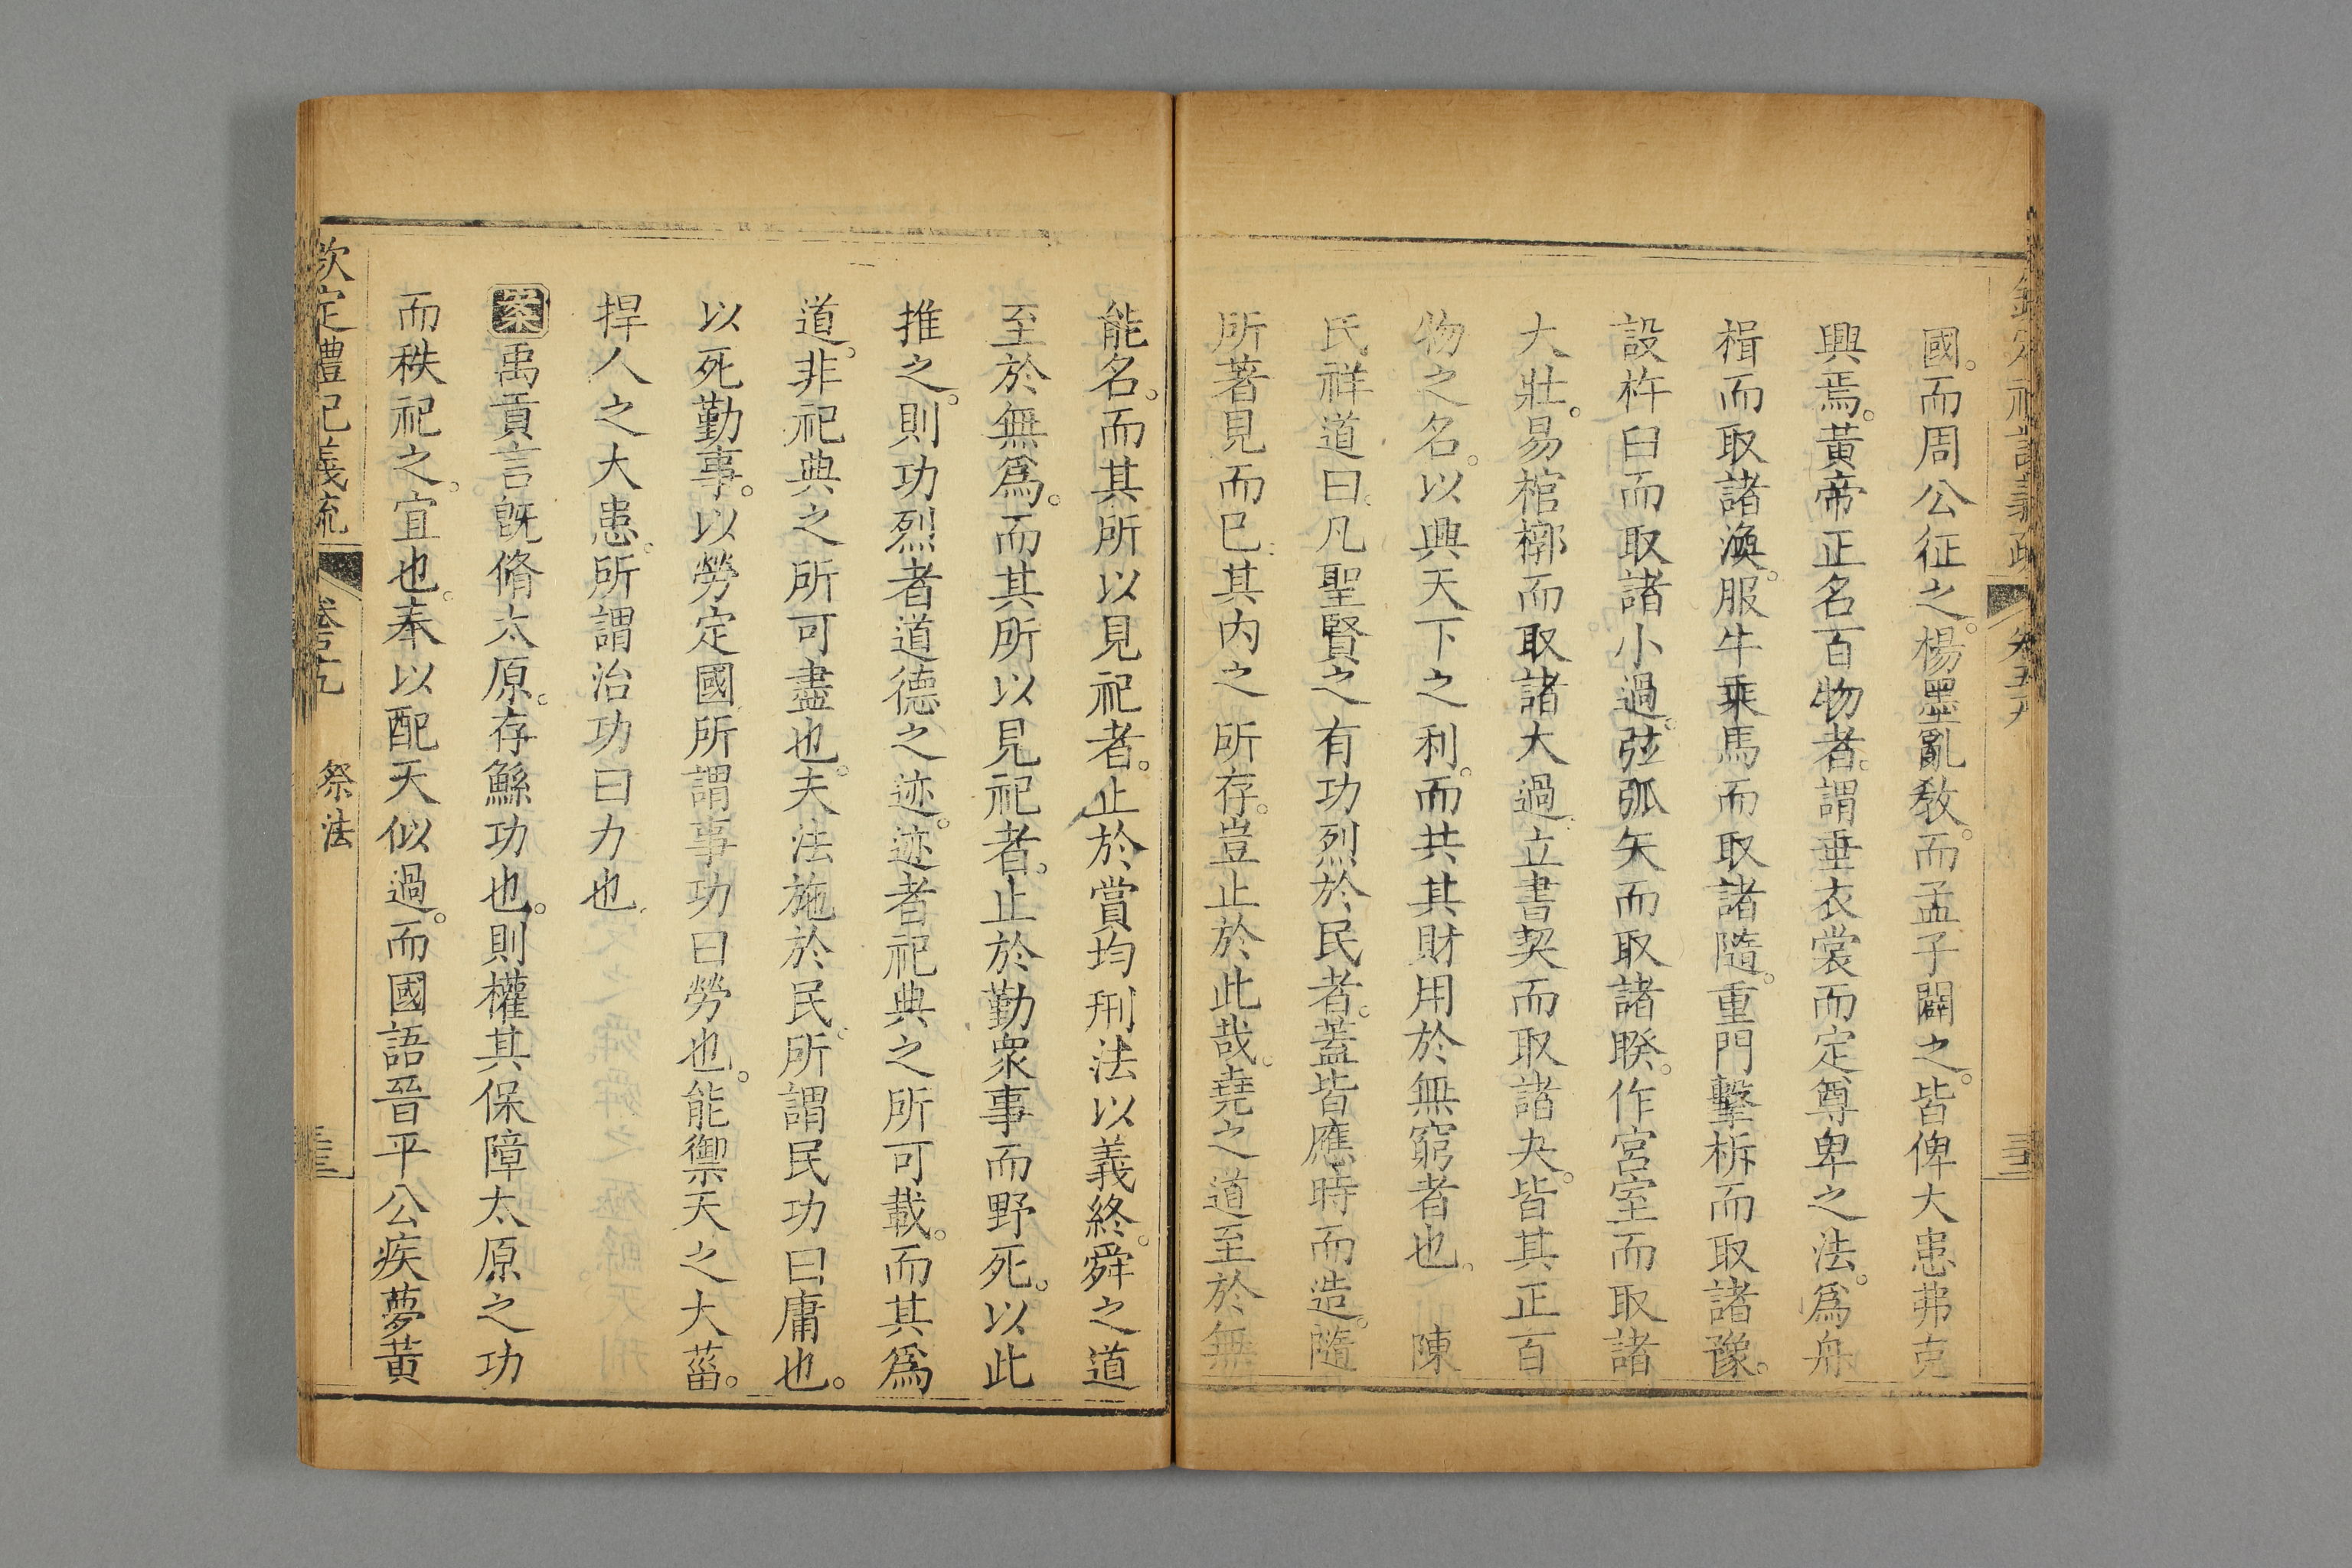 國。而周公征之。楊墨亂教。而孟子闢之。皆俾大患弗克
興焉。黃帝正名百物者。謂垂衣裳而定尊卑之法。爲舟
楫而取諸渙。服牛乘馬而取諸隨。重門擊柝而取諸豫。
設杵臼而取諸小過。弦弧矢而取諸睽。作宮室而取諸
大壯。易棺槨而取諸大過。立書契而取諸夬。皆其正百
物之名。以興天下之利。而共其財用於無窮者也。 陳
氏祥道曰。凡聖賢之有功烈於民者。蓋皆應時而造。隨
所著見而已。其內之所存。豈止於此哉。堯之道至於無
能名。而其所以見祀者。止於賞均刑法以義終。舜之道
至於無爲。而其所以見祀者。止於勤衆事而野死。以此
推之。則功烈者道德之迹。迹者祀典之所可載。而其爲
道。非祀典之所可盡也。夫法施於民。所謂民功曰庸也。
以死勤事。以勞定國所謂事功曰勞也。能禦天之大菑。
捍人之大患。所謂治功曰力也。
案禹貢言旣脩太原。存鯀功也。則權其保障太原之功
而秩祀之。宜也。奉以配天似過。而國語晉平公疾夢黃
欽定禮記義疏 卷五十九 祭法